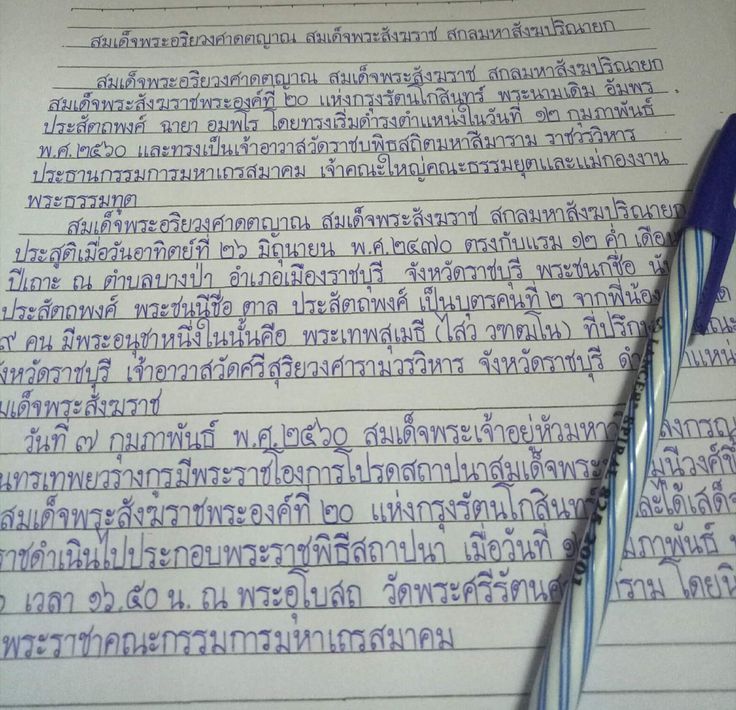 สมเด็จพระอริยวงศาคตญาณ สมเด็จพระสังฆราช สกลมหาสังฆปริณายก
สมเด็จพระอริยวงศาคตญาณ สมเด็จพระสังฆราช สกลมหาสังฆปริณายก
สมเด็จพระสังฆราชพระองค์ที่ ๒๐ แห่งกรุงรัตนโกสินทร์ พระนามเดิม อัมพร
ประสัตถพงศ์ ฉายา อมพโร โดยทรงเริ่มดำรงตำแหน่งในวันที่ ๑๒ กุมภาพันธ์
พ.ศ.๒๕๖๐ และทรงเป็นเจ้าอาวาสวัดราชบพิธสถิตมหาสีมาราม ราชวรวิหาร
ประธานกรรมการมหาเถรสมาคม เจ้าคณะใหญ่คณะธรรมยุตและแม่กองงาน
พระธรรมทูต
สมเด็จพระอริยวงศาคตญาณ สมเด็จพระสังฆราช สกลมหาสังฆปริณายก
ประสูติเมื่อวันอาทิตย์ที่ ๒๖ มิถุนายน พ.ศ.๒๔๗๐ ตรงกับแรม ๑๒ ค่ำ เดือน
ปีเถาะ ณ ตำบลบางป่า อำเภอเมืองราชบุรี จังหวัดราชบุรี พระชนกชื่อ
ประสัตถพงศ์ พระชนนีชื่อ ตาล ประสัตถพงศ์ เป็นบุตรคนที่ ๒ จากพี่น้อง
๙ คน มีพระอนุชาหนึ่งในนั้นคือ พระเทพสุเมธี (ไสว วฑฒโน) ที่ปรึก
จังหวัดราชบุรี เจ้าอาวาสวัดศรีสุริยวงศารามวรวิหาร จังหวัดราชบุรี
มเด็จพระสังฆราช
วันที่ ๗ กุมภาพันธ์ พ.ศ.๒๕๖๐ สมเด็จพระเจ้าอยู่หัวมหา ลงกรณ
นทรเทพยวรางกูรมีพระราชโองการโปรดสถาปนาสมเด็จพระ มุนีวงศ์ขึ้
สมเด็จพระสังฆราชพระองค์ที่ ๒๐ แห่งกรุงรัตนโกสินทร ละได้เสด็จ
ราชดำเนินไปประกอบพระราชพิธีสถาปนา เมื่อวันที่ มภาพันธ์
เวลา ๑๖.๕๐ น. ณ พระอุโบสถ วัดพระศรีรัตนศ าราม โดยนิ
พระราชาคณะกรรมการมหาเถรสมาคม
LANCER SPIRAL 825